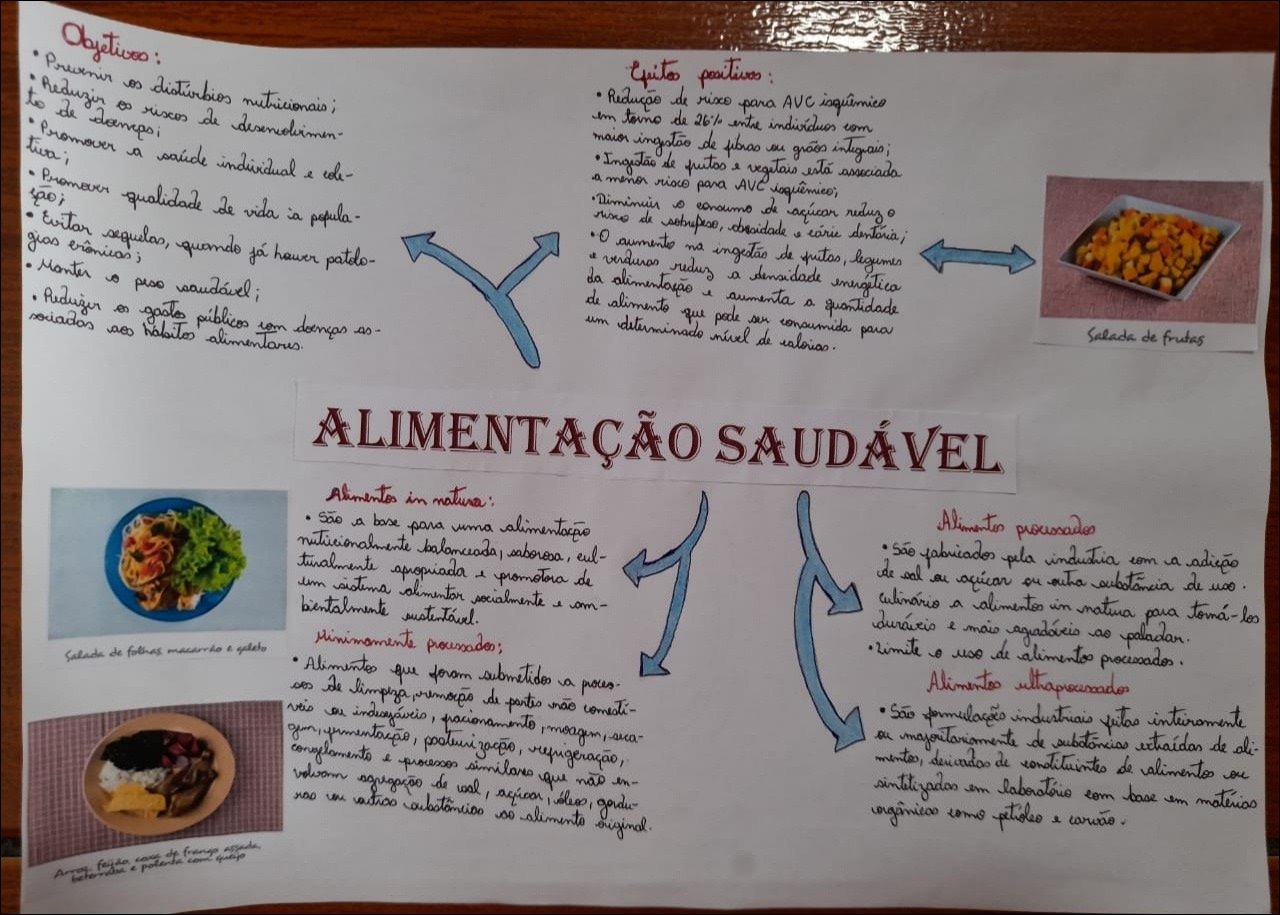 Objetivos:
• Prevenir os distúrbios nutricionais;
• Reduzir os riscos de desenvolvimen-
to de doenças;
• Promover a saúde individual e cole-
tiva;
• Promover qualidade de vida à popula-
ção;
• Evitar sequelas, quando já houver patolo-
gias crônicas;
• Manter o peso saudável;
• Reduzir os gastos públicos com doenças as-
sociadas aos hábitos alimentares.
Efeitos positivos:
• Redução de risco para AVC isquêmico
em torno de 26% entre indivíduos com
maior ingestão de fibras ou grãos integrais;
• Ingestão de frutas e vegetais está associada
a menor risco para AVC isquêmico;
• Diminuir o consumo de açúcar reduz o
risco de sobrepeso, obesidade e cárie dentária;
• O aumento na ingestão de frutas, legumes
e verduras reduz a densidade energética
da alimentação e aumenta a quantidade
de alimento que pode ser consumida para
um determinado nível de calorias.
Salada de frutas
ALIMENTAÇÃO SAUDÁVEL
Salada de folhas, macarrão e galeto
Arroz, feijão, coxa de frango assada,
beterraba e polenta com queijo
Alimentos in natura:
• São a base para uma alimentação
nutricionalmente balanceada, saborosa, cul-
turalmente apropriada e promotora de
um sistema alimentar socialmente e am-
bientalmente sustentável.
Minimamente processados:
• Alimentos que foram submetidos a proces-
sos de limpeza, remoção de partes não comestí-
veis ou indesejáveis, fracionamento, moagem, seca-
gem, fermentação, pasteurização, refrigeração,
congelamento e processos similares que não en-
volvam agregação de sal, açúcar, óleos, gordu-
ras ou outras substâncias ao alimento original.
Alimentos processados
• São fabricados pela industria com a adição
de sal ou açúcar ou outra substância de uso.
culinário a alimentos in natura para torná-los
duráveis e mais agradáveis ao paladar.
• Limite o uso de alimentos processados.
Alimentos ultraprocessados
• São formulações industriais feitas inteiramente
ou majoritariamente de substâncias extraídas de ali-
mentos, derivadas de constituintes de alimentos ou
sintetizadas em laboratório com base em matérias
orgânicas como petróleo e carvão.